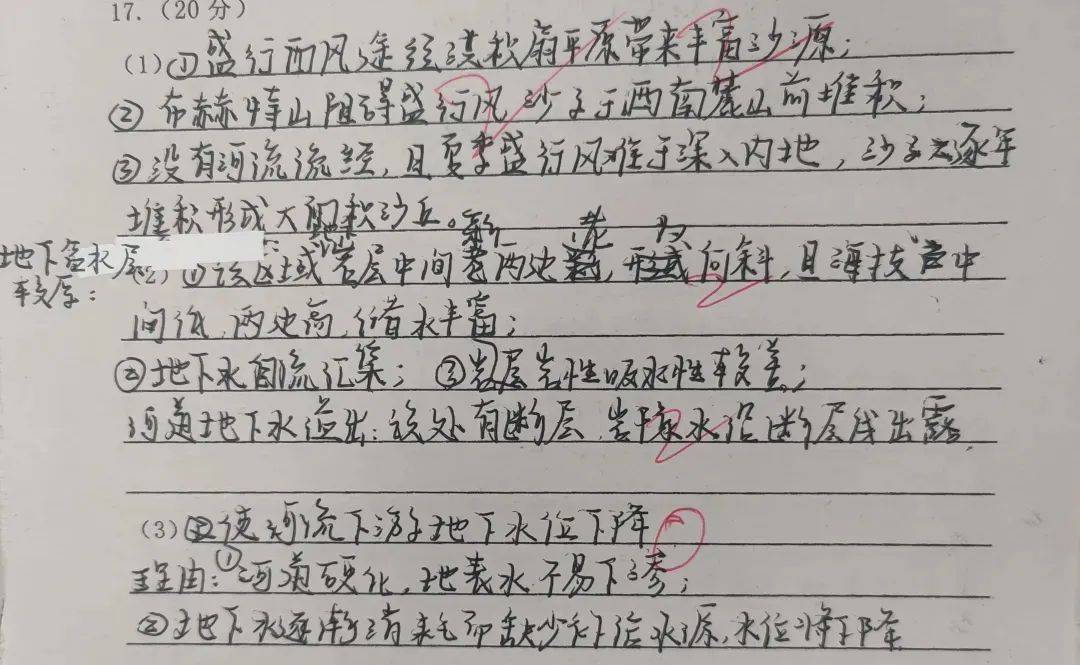 17.（20分）
(1)①盛行西风途经洪积扇平原带来丰富沙源；
②布赫特山阻碍盛行风，沙子于西南麓山前堆积；
③没有河流流经，且夏季盛行风难于深入内地，沙子逐年
堆积形成大面积沙丘。
新 老 为
地下含水层
较厚：
(2)①该区域岩层中间 两边 ，形成向斜，且海拔 中
间低，两边高，储水丰富；
②地下水回流汇集；③岩层岩性吸水性较差；
河道地下水溢出：该处有断层，岩 水沿断层线出露
(3) 使河流下游地下水位下降
理由：①河道硬化，地表水不易下渗；
②地下水逐渐消耗而缺少补给水源，水位将下降